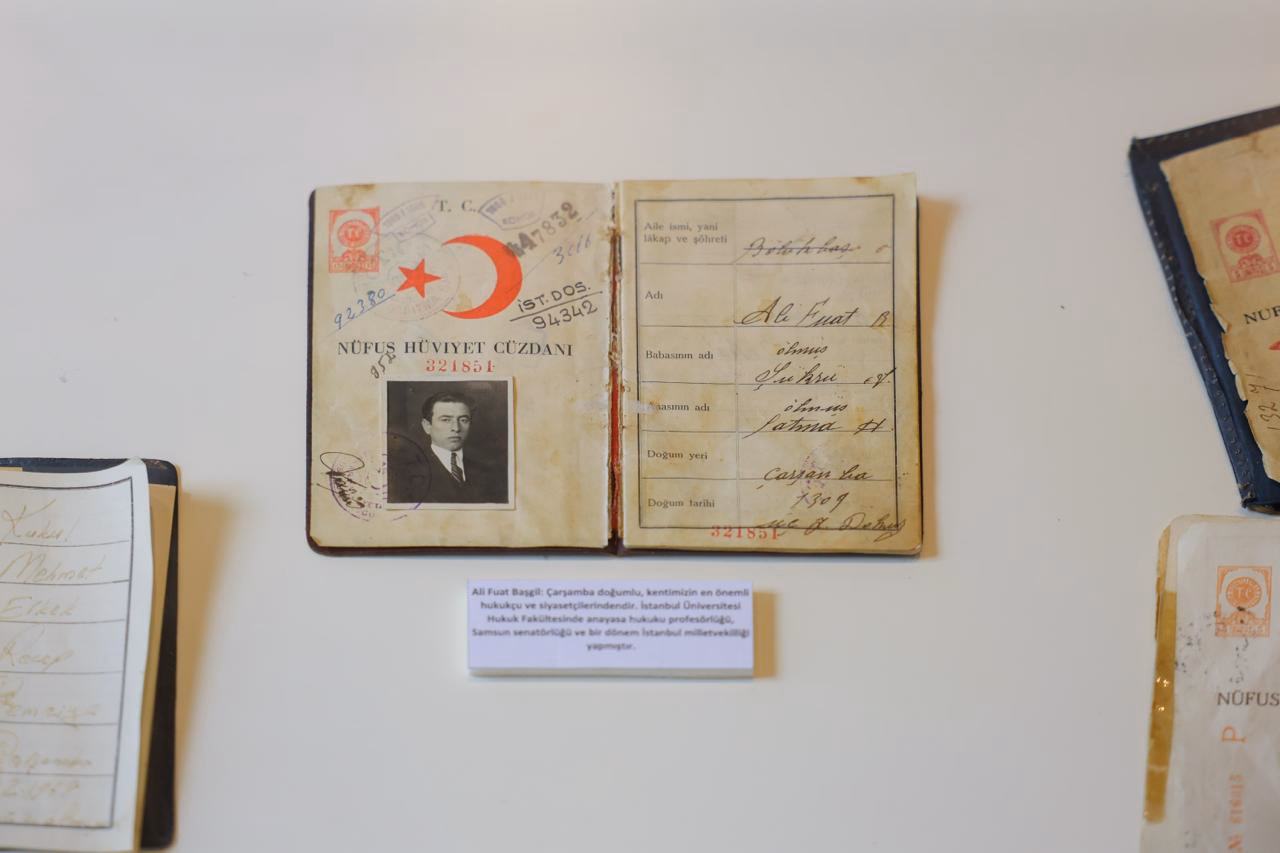 T. C.
447832
3066
92380
İST. DOS.
94342
NÜFUS HÜVİYET CÜZDANI
321851
Aile ismi, yani
lâkap ve şöhreti
Adı
Ali Fuat B
Babasının adı
ölmüş
Şükrü ef.
Anasının adı
ölmüş
Fatma H.
Doğum yeri
Çarşanba
Doğum tarihi
1309
321851
Ali Fuat Başgil: Çarşamba doğumlu, kentimizin en önemli
hukukçu ve siyasetçilerindendir. İstanbul Üniversitesi
Hukuk Fakültesinde anayasa hukuku profesörlüğü,
Samsun senatörlüğü ve bir dönem İstanbul milletvekilliği
yapmıştır.
Mehmet
Erkek
Recep
NÜF
NÜFUS